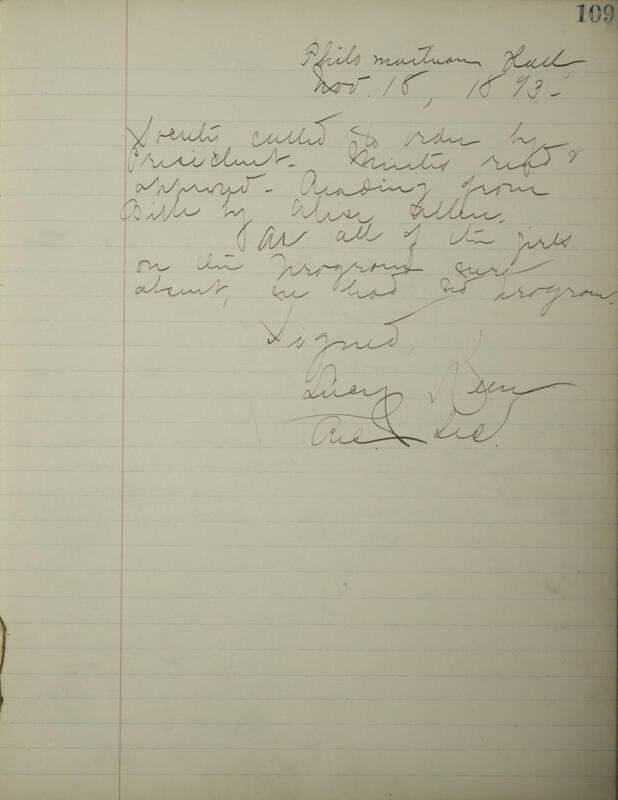 109
Philomartian Hall,
Nov. 18, 1893-
Society called to order by
President. Minutes read &
approved - Reading from
Bible by Allen.
As all of the girls
on the program were
absent, we had no program.
Signed,
Lucy
Rec. Sec.